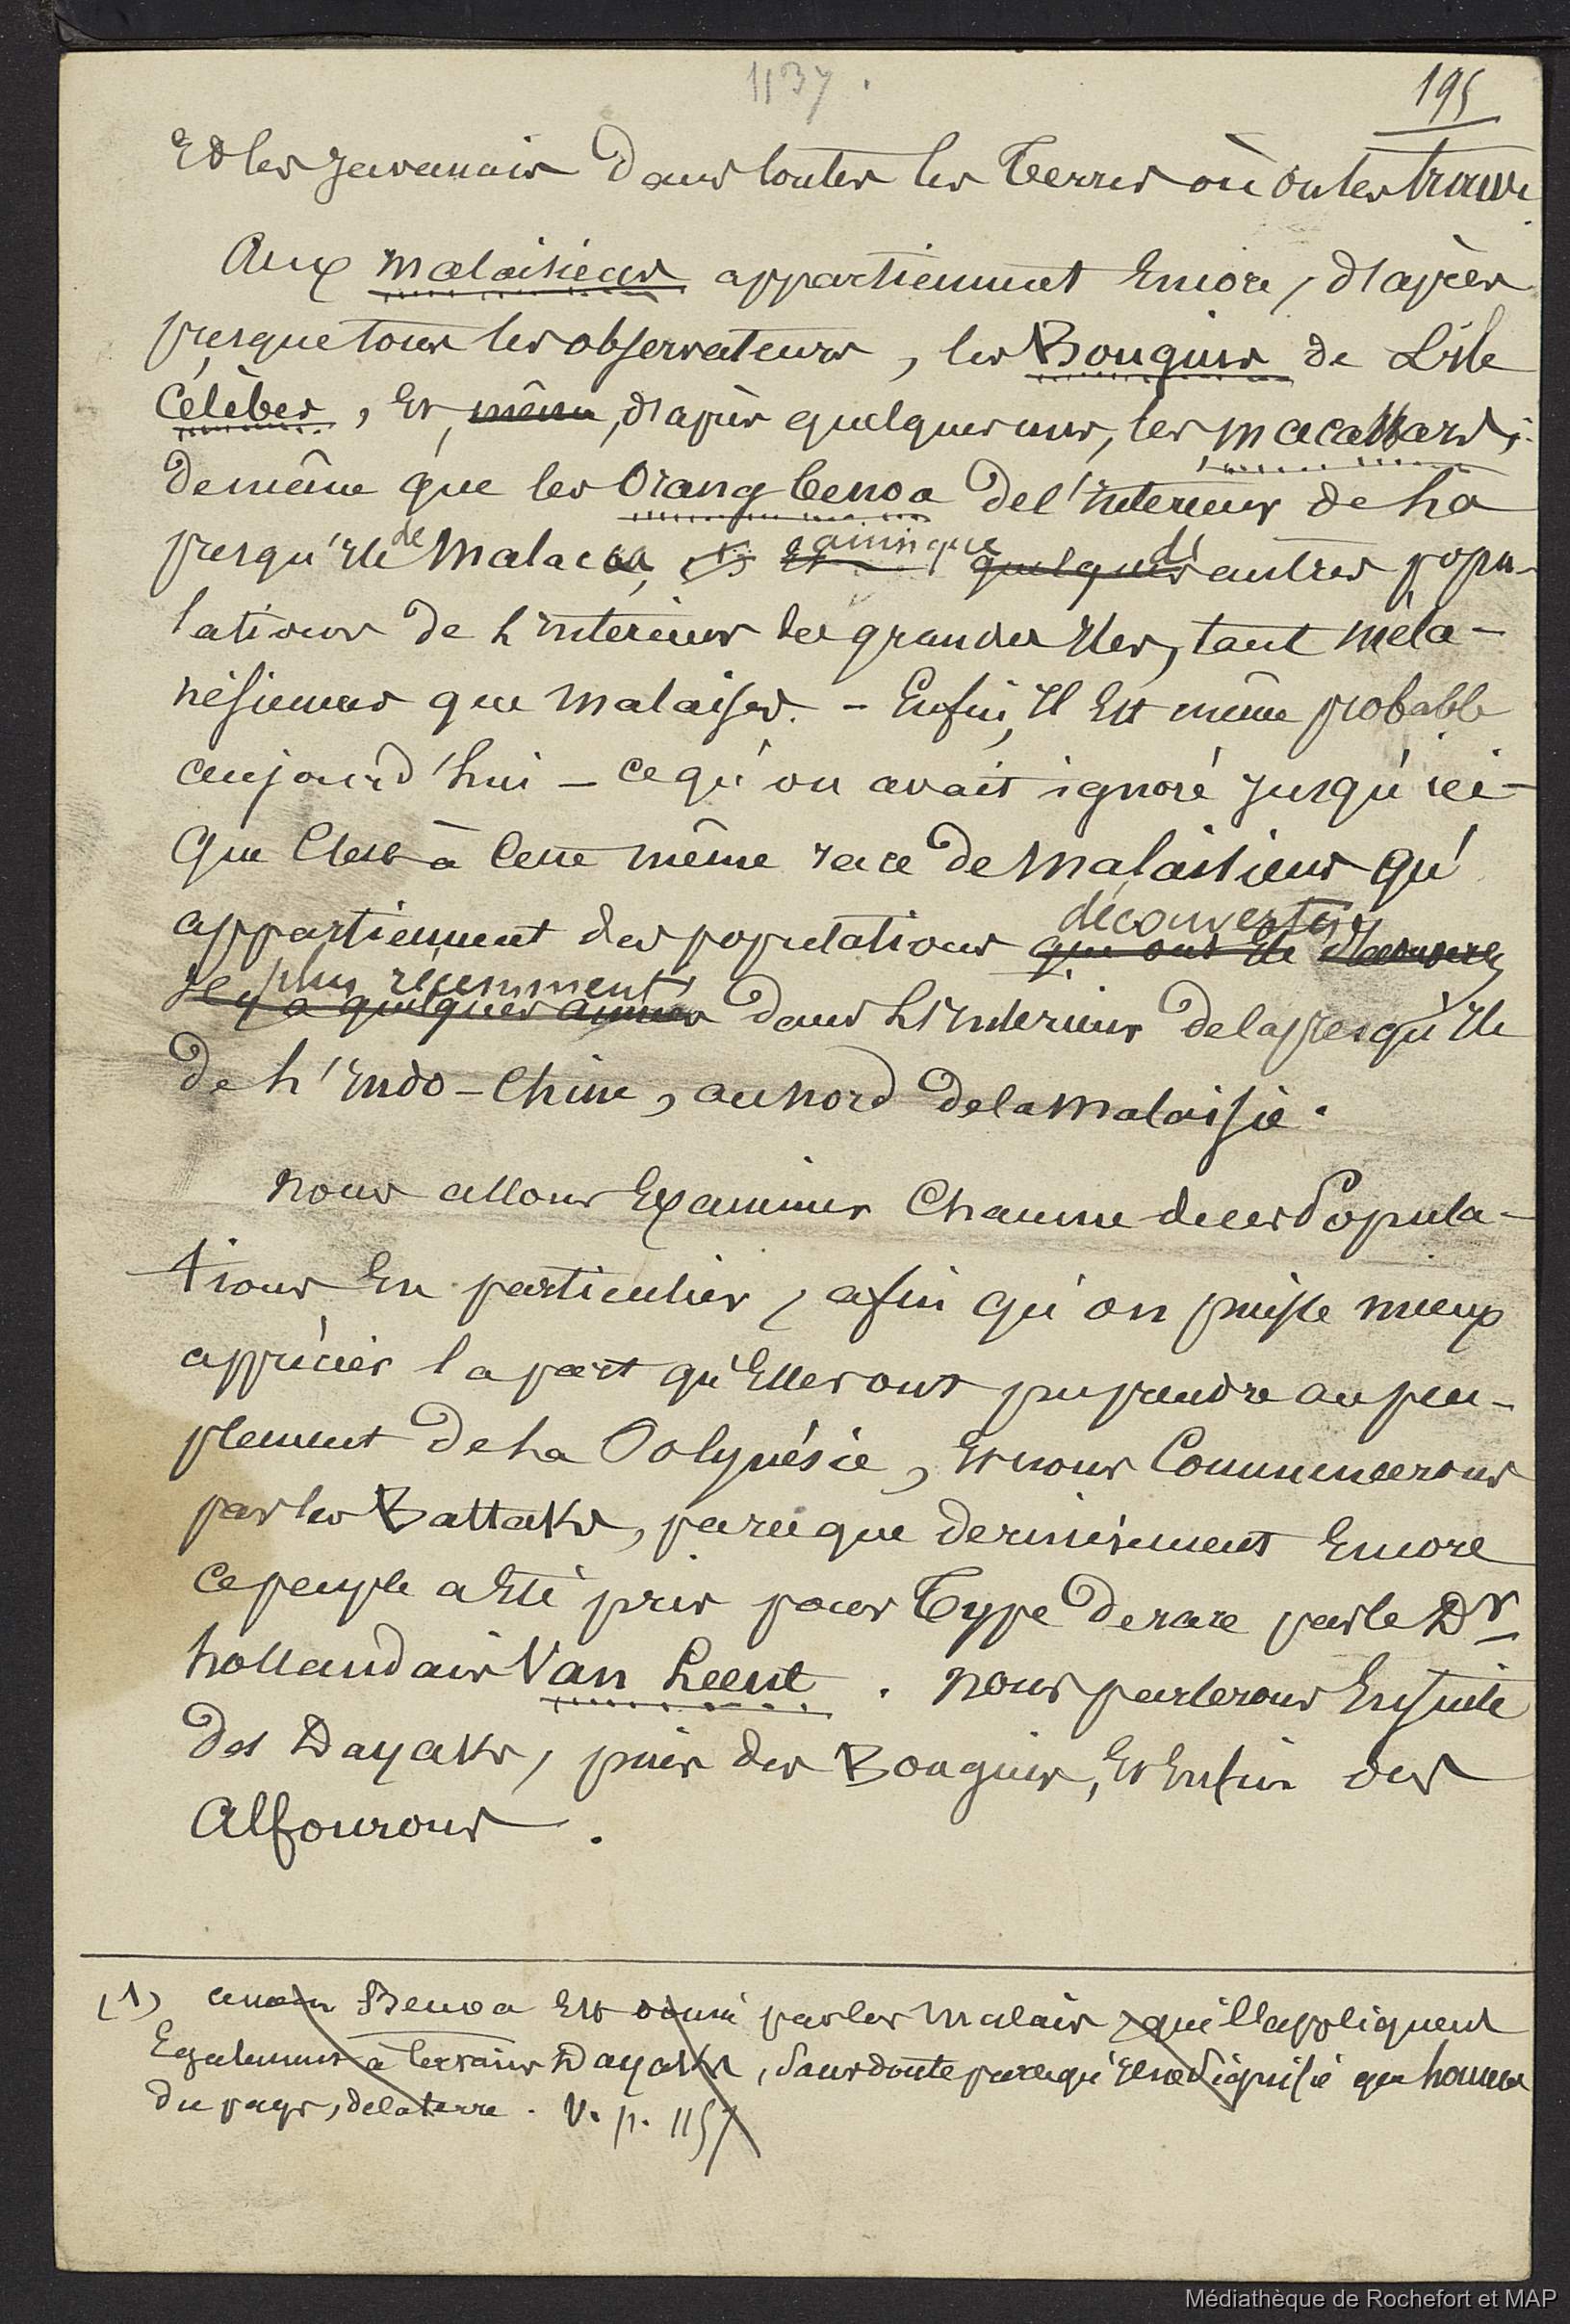 1137.
195
Et les Javanais dans toutes les Terres où on les trouve.
Aux Malaisiens appartiennent Encore, d'après
presque tous les observateurs, les Bouguis de L'île
Célèbes, Et, même, d'après quelques uns, les Macassars;
de même que les Orang benoa de l'intérieur de la
presqu'ile de Malacca, (1) Et ainsi que quelques d'autres popu-
lations de l'intérieur des grandes Iles, tant méla-
nésiennes que Malaises. - Enfin, Il Est même probable
aujourd'hui - ce qu'on avait ignoré jusqu'ici -
que C'est à Cette même race de Malaisiens qu'
appartiennent des populations qui ont été découvertes
découvertes
plus récemment
Il y a quelques années dans L'Intérieur de la presqu'Ile
de L'Indo-Chine, au Nord de la Malaisie.
Nous allons Examiner Chacune de ces Popula-
tions En particulier, afin qu'on puisse mieux
apprécier la part qu'Elles ont pu prendre au peu-
plement de la Polynésie, Et nous Commencerons
par les Battaks, parce que dernièrement Encore
ce peuple a Eté pris pour Type de race par le Dr
hollandais Van Leent. Nous parlerons Ensuite
des Dayaks, puis des Bouguis, Et Enfin des
Alfourous.
(1) Benoa Est donné par les Malais qui l'appliquent
Egalement à certains Dayaks, Sans doute parce qu'il ne Signifie que hommes
du pays, de la terre. V. p. 1157
Médiathèque de Rochefort et MAP